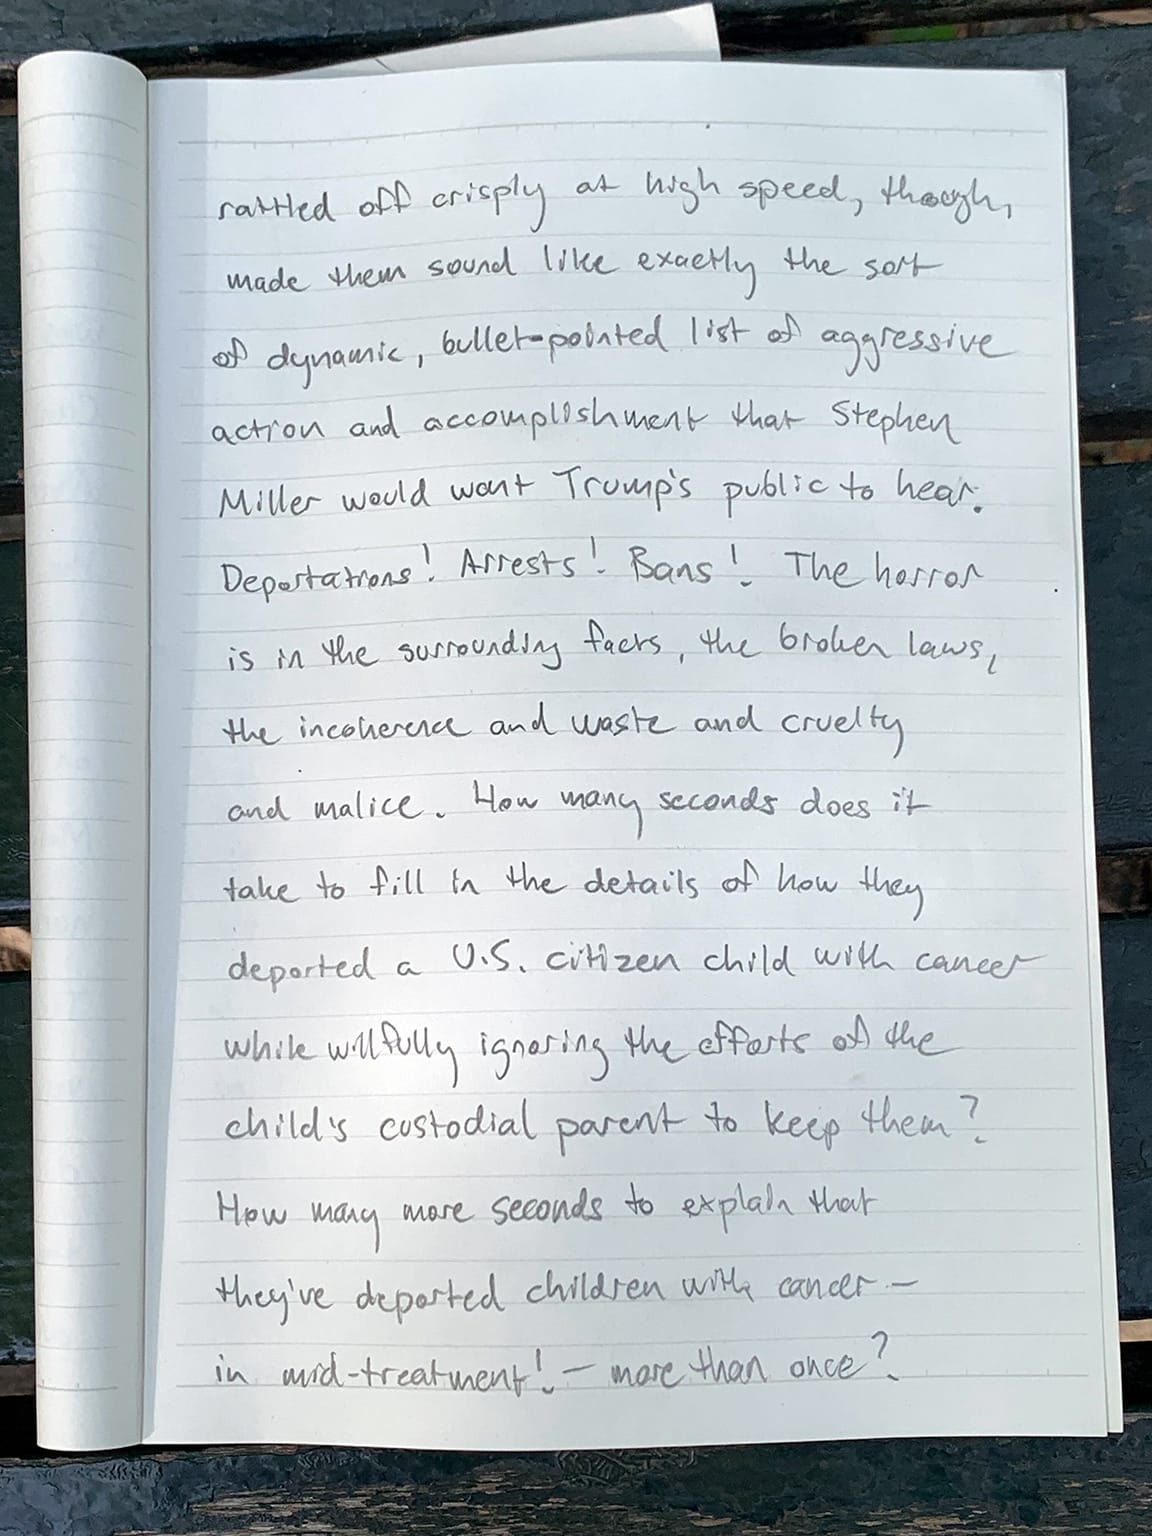 rattled off crisply at high speed, though,
made them sound like exactly the sort
of dynamic, bullet-pointed list of aggressive
action and accomplishment that Stephen
Miller would want Trump's public to hear.
Deportations! Arrests! Bans! The horror
is in the surrounding facts, the broken laws,
the incoherence and waste and cruelty
and malice. How many seconds does it
take to fill in the details of how they
deported a U.S. citizen child with cancer
while willfully ignoring the efforts of the
child's custodial parent to keep them?
How many more seconds to explain that
they've deported children with cancer—
in mid-treatment!—more than once?